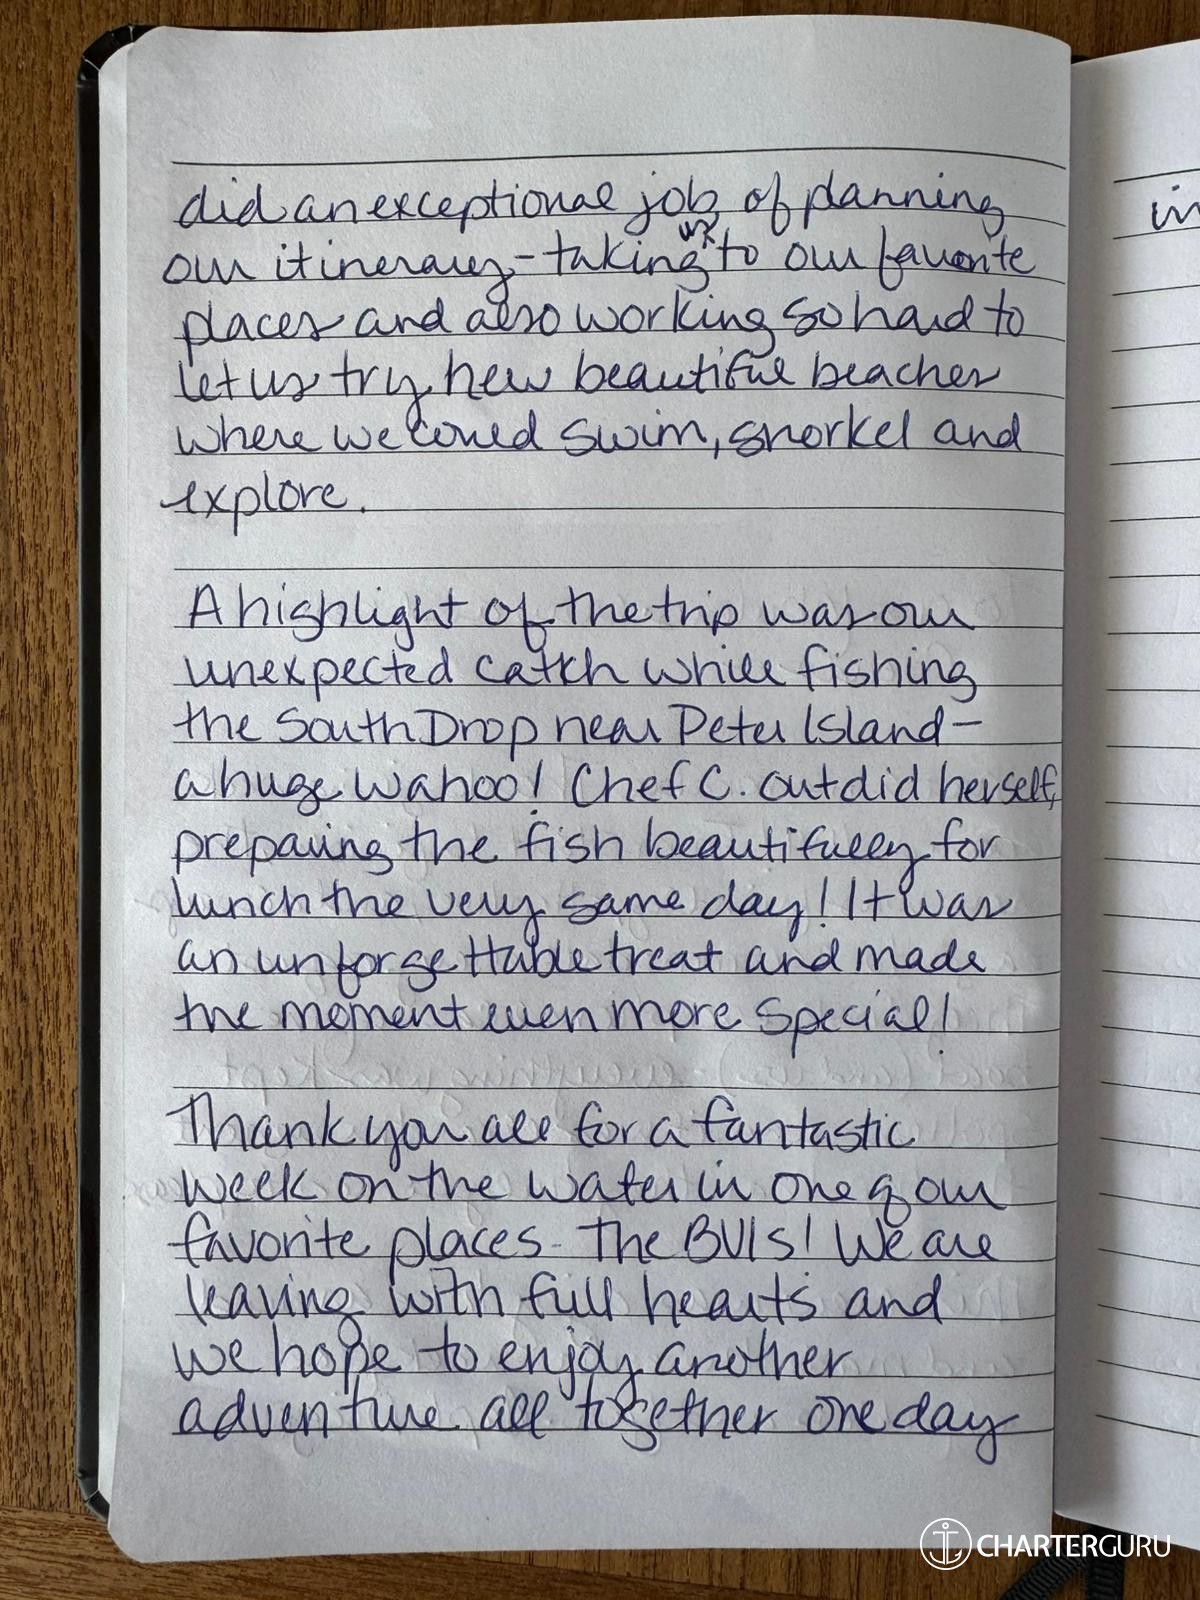 did an exceptional job of planning
our itinerary - taking us to our favorite
places and also working so hard to
let us try new beautiful beaches
where we could swim, snorkel and
explore.
A highlight of the trip was our
unexpected catch while fishing
the South Drop near Peter Island -
a huge Wahoo! Chef C. outdid herself,
preparing the fish beautifully for
lunch the very same day! It was
an unforgettable treat and made
the moment even more special!
Thank you all for a fantastic
week on the water in one of our
favorite places - The BVIs! We are
leaving with full hearts and
we hope to enjoy another
adventure all together one day
CHARTERGURU